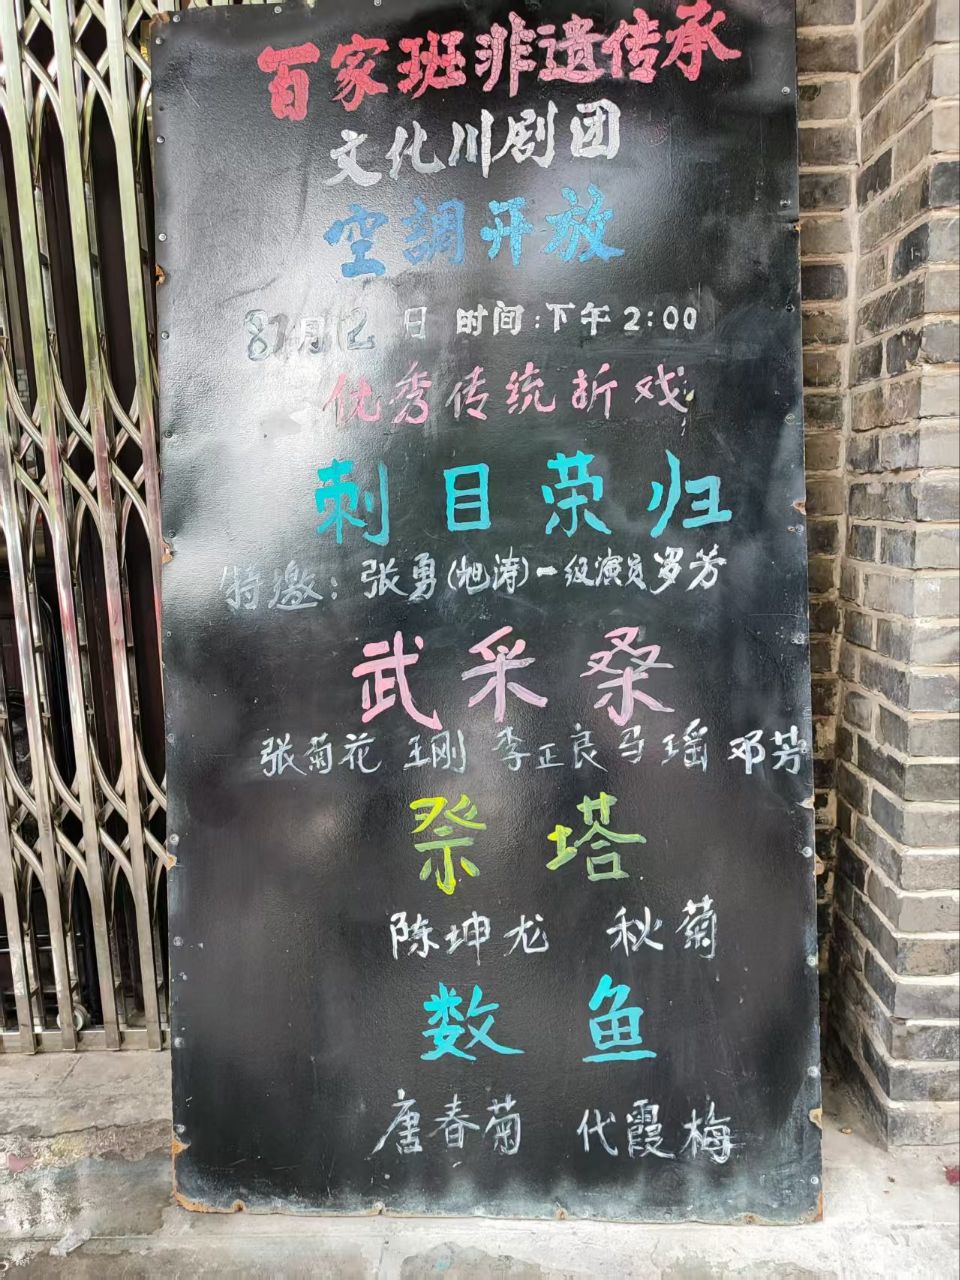 百家班非遗传承
文化川剧团
空調开放
8月12日 时间:下午2:00
优秀传统折戏
刺目荣归
特邀:张勇(旭涛)一级演员罗芳
武采桑
张菊花 王刚 李正良 马瑶 邓芳
祭塔
陈坤龙 秋菊
数鱼
唐春菊 代霞梅